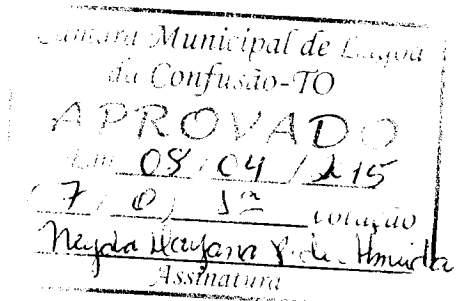 Câmara Municipal de Lagoa
da Confusão-TO
APROVADO
Em 08 / 04 / 2015
( 7 / 0 ) 1ª votação
de Almeida
Assinatura